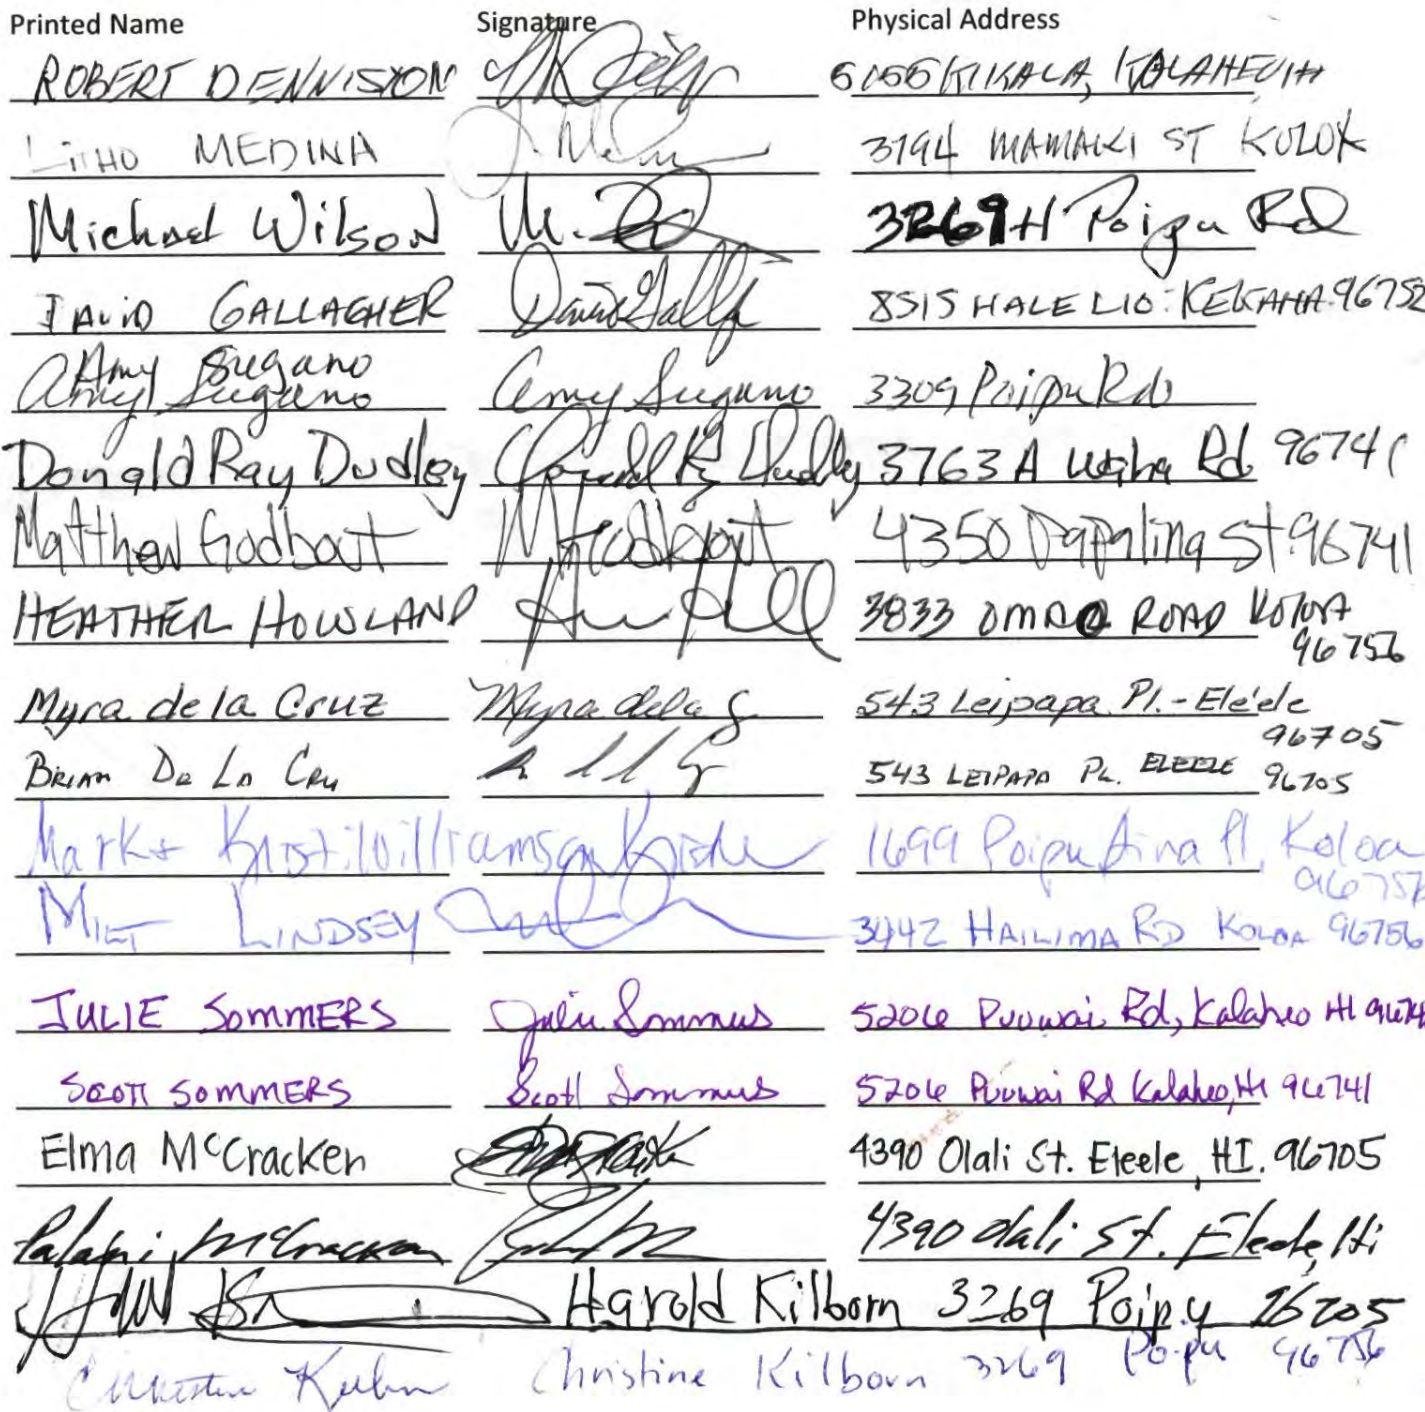 Printed Name Signature Physical Address
ROBERT DENNISTON KIKALA, KALAHEO HI
MEDINA 3794 MAMAKI ST KOLOA
Michael Wilson M. 3269 H Poipu Rd
DAVID GALLAGHER David Gallagher 8515 HALE LIO. KEKAHA. 96752
Amy Sugano
Amy Sugano Amy Sugano 3309 Poipu Rd
Donald Ray Dudley Donald R Dudley 3763 A Rd 96741
Matthew Godbout M Godbout 4350 Papalina St. 96741
HEATHER HOWLAND 3833 OMAO ROAD KOLOA
96756
Myra de la Cruz Myra dela C 543 Leipapa Pl. - Ele'ele
96705
BRIAN De La Cru 543 LEIPAPA PL. ELEELE 96705
Mark + Kristi Williamson 1699 Poipu Aina Pl, Koloa
96756
LINDSEY 3442 HAILIMA RD KOLOA 96756
JULIE SOMMERS Julie Sommers 5206 Puuwai Rd, Kalaheo HI 96741
SCOTT SOMMERS Scott Sommers 5206 Puuwai Rd Kalaheo, HI 96741
Elma McCracken 4390 Olali St. Eleele, HI. 96705
McCracken 4390 Olali St. Eleele, Hi
Harold Kilborn 3269 Poipu
Christine Kilborn 3269 Poipu 96756